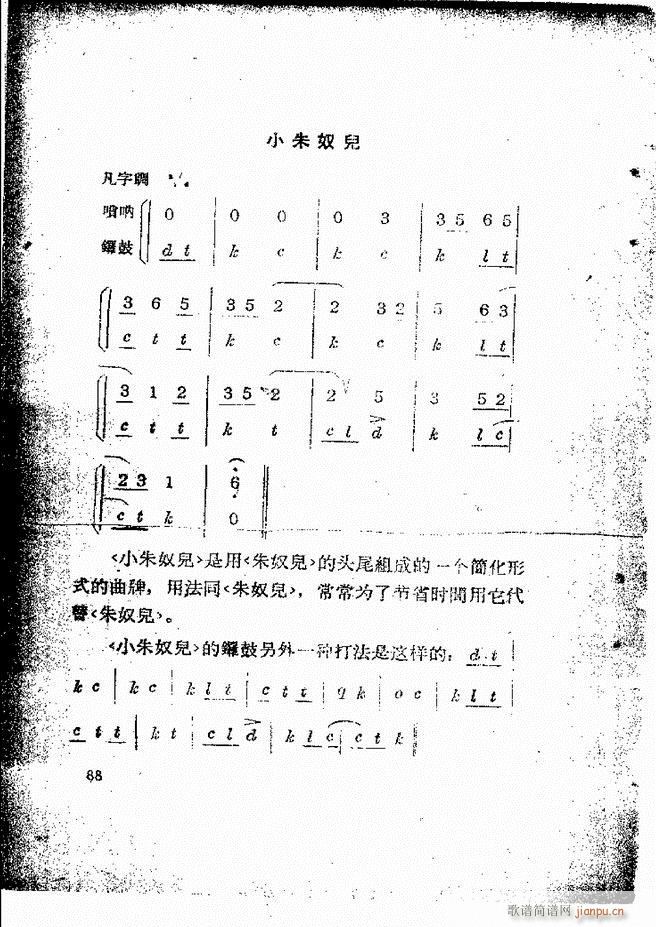 小朱奴兒
凡字調
嗩吶 0 | 0 0 | 0 3 | 3 5 6 5 |
鑼鼓 d t | k c | k c | k l t |
3 6 5 | 3 5 2 | 2 3 2 | 5 6 3 |
c t t | k c | k c | k l t |
3 1 2 | 3 5 2 | 2 5 | 3 5 2 |
c t t | k t | c l d | k l c |
2 3 1 | 6 ‖
c t k | 0 ‖
〈小朱奴兒〉是用〈朱奴兒〉的头尾組成的一个简化形
式的曲牌，用法同〈朱奴兒〉，常常为了节省时間用它代
替〈朱奴兒〉。
〈小朱奴兒〉的鑼鼓另外一种打法是这样的：d t |
k c | k c | k l t | c t t | k | o c | k l t |
c t t | k t | c l d | k l c | c t k ‖
88
歌谱简谱网 jianpu.cn